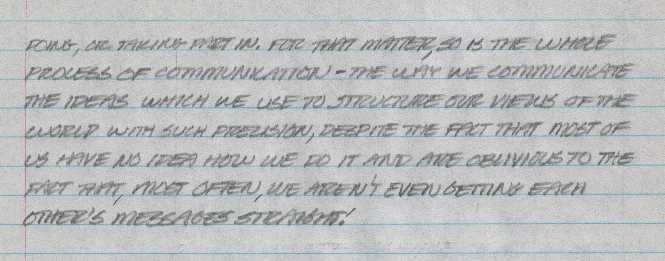 DOING, OR TAKING PART IN. FOR THAT MATTER, SO IS THE WHOLE
PROCESS OF COMMUNICATION – THE WAY WE COMMUNICATE
THE IDEAS WHICH WE USE TO STRUCTURE OUR VIEWS OF THE
WORLD WITH SUCH PRECISION, DESPITE THE FACT THAT MOST OF
US HAVE NO IDEA HOW WE DO IT AND ARE OBLIVIOUS TO THE
FACT THAT, MOST OFTEN, WE AREN'T EVEN GETTING EACH
OTHER'S MESSAGES STRAIGHT!